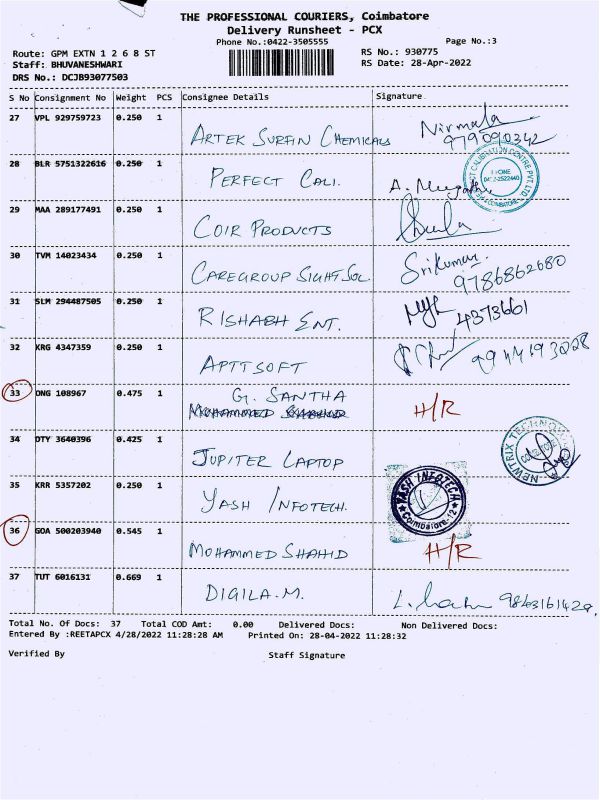 THE PROFESSIONAL COURIERS, Coimbatore
Delivery Runsheet - PCX
Phone No.:0422-3505555
Page No.:3
Route: GPM EXTN 1 2 6 8 ST
RS No.: 930775
Staff: BHUVANESHWARI
RS Date: 28-Apr-2022
DRS No.: DCJB93077503
S No Consignment No Weight PCS Consignee Details Signature
27 VPL 929759723 0.250 1
ARTEK SURFIN CHEMICALS
Nirmala
979090342
28 BLR 5751322616 0.250 1
PERFECT CALI.
29 MAA 289177491 0.250 1
COIR PRODUCTS
30 TVM 14023434 0.250 1
CAREGROUP SIGHT SOL.
Srikumar.
9786862680
31 SLM 294487505 0.250 1
RISHABH ENT.
4373661
32 KRG 4347359 0.250 1
APTTSOFT
9944193228
33 ONG 108967 0.475 1
G. SANTHA
MOHAMMED SHAHID
H/R
34 OTY 3640396 0.425 1
JUPITER LAPTOP
NEWTRIX TECHNO
35 KRR 5357202 0.250 1
YASH INFOTECH.
YASH INFOTECH
Coimbatore-12
36 GOA 500203940 0.545 1
MOHAMMED SHAHID
H/R
37 TUT 6016131 0.669 1
DIGILA.M.
Total No. Of Docs: 37 Total COD Amt: 0.00 Delivered Docs: Non Delivered Docs:
Entered By :REETAPCX 4/28/2022 11:28:28 AM Printed On: 28-04-2022 11:28:32
Verified By Staff Signature